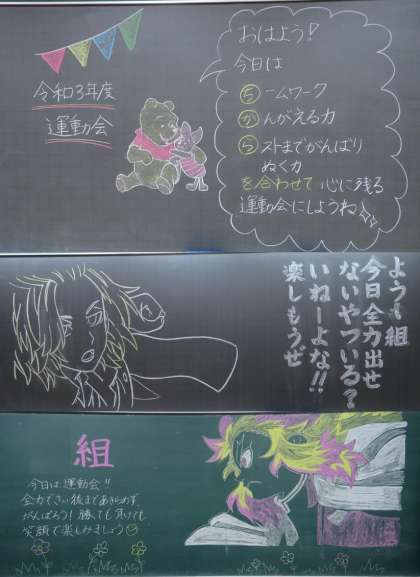 令和3年度
運動会
おはよう!
今日は
ちームワーク
かんがえる力
らストまでがんばり
ぬく力
を合わせて心に残る
運動会にしようね!
よう〜組
今日全力出せ
ないやついる?
いねーよな!!
楽しもうぜ
組
今日は運動会!!
全力でさい後まであきらめず
がんばろう!勝ても負けても
笑顔で楽しみましょう